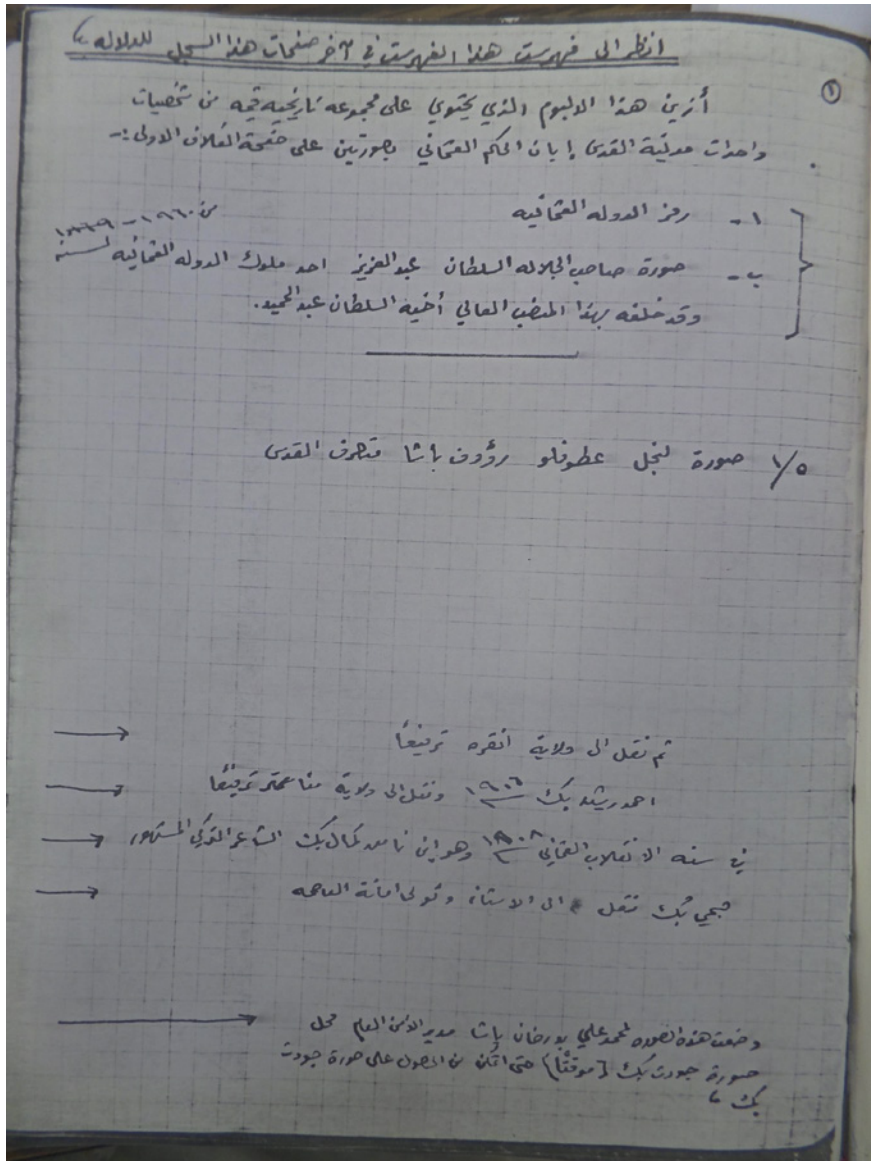 انظر الى فهرست هذا الفهرست في آخر صفحات هذا السجل للدلاله
①
أزين هذا الالبوم الذي يحتوي على مجموعه تاريخيه قيمه من شخصيات
واحداث مدينة القدس إبان الحكم العثماني بصورتين على صفحة الغلاف الاولى :-
١- رمز الدوله العثمانيه
ب- صورة صاحب الجلاله السلطان عبدالعزيز احد ملوك الدوله العثمانيه لسنة
وقد خلفه بهذا المنصب العالي أخيه السلطان عبدالحميد.
١/٥ صورة لنجل عطوفلو رؤوف باشا متصرف القدس
ثم نقل الى ولاية انقره ترفيعاً
احمد رشيد بك ١٩٠٦ ونقل الى ولاية ترفيعاً
في سنه الانقلاب العثماني ١٩٠٨ وهو ابن نامق كمال بك الشاعر التركي المشهور
صبحي بك نقل الى الاستانه وتولى امانة العاصمه
وضعت هذه الصوره لمحمد علي بدرخان باشا مدير الأمن العام محل
صورة جودت بك (موقتاً) حتى اتمكن من الحصول على صورة جودت
بك